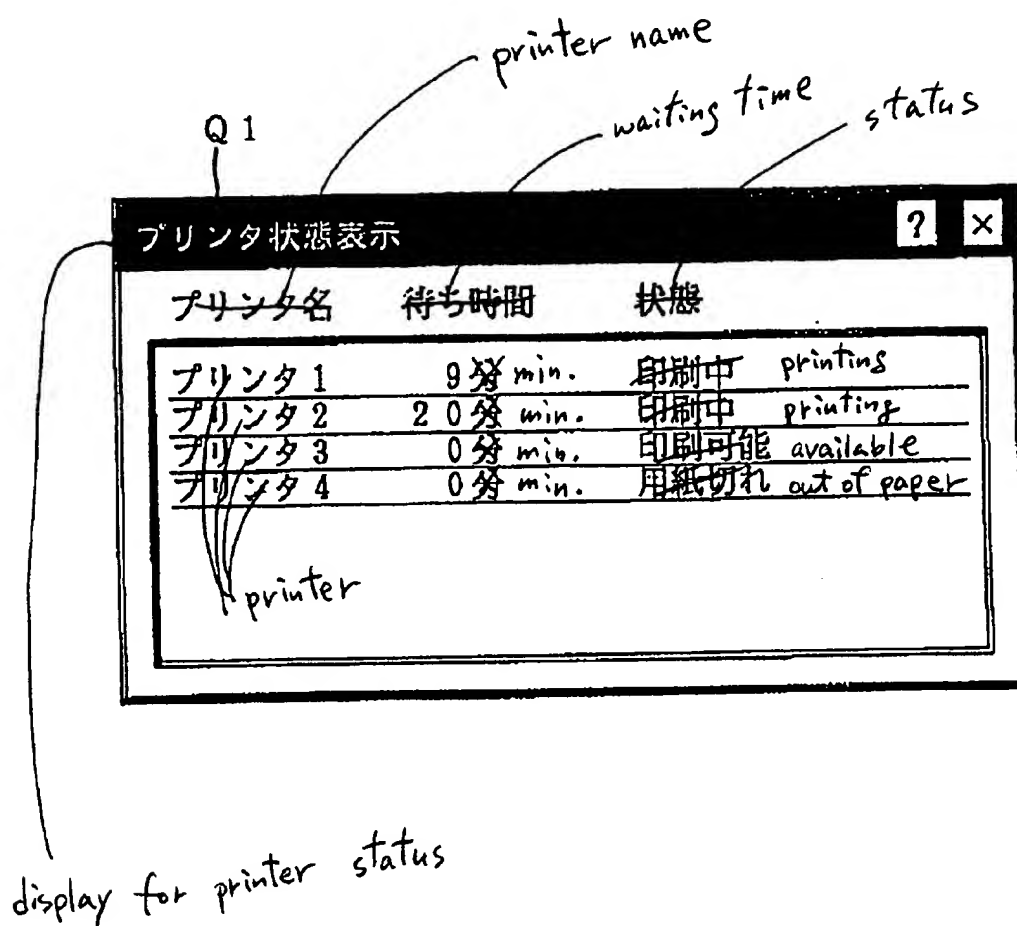 printer name
waiting time
status
Q1
プリンタ状態表示 ? ×
プリンタ名 待ち時間 状態
プリンタ1 9分 min. 印刷中 printing
プリンタ2 20分 min. 印刷中 printing
プリンタ3 0分 min. 印刷可能 available
プリンタ4 0分 min. 用紙切れ out of paper
printer
display for printer status